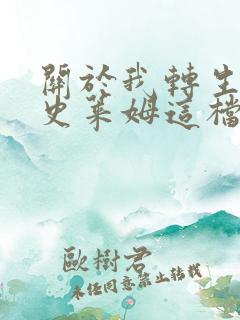 關於我轉生
史萊姆這檔
歐樹君
未经同意禁止转载